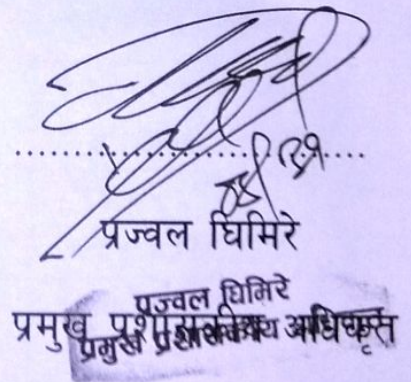 प्रज्वल घिमिरे
प्रज्वल घिमिरे
प्रमुख प्रशासकीय अधिकृत
प्रमुख प्रशासकीय अधिकृत